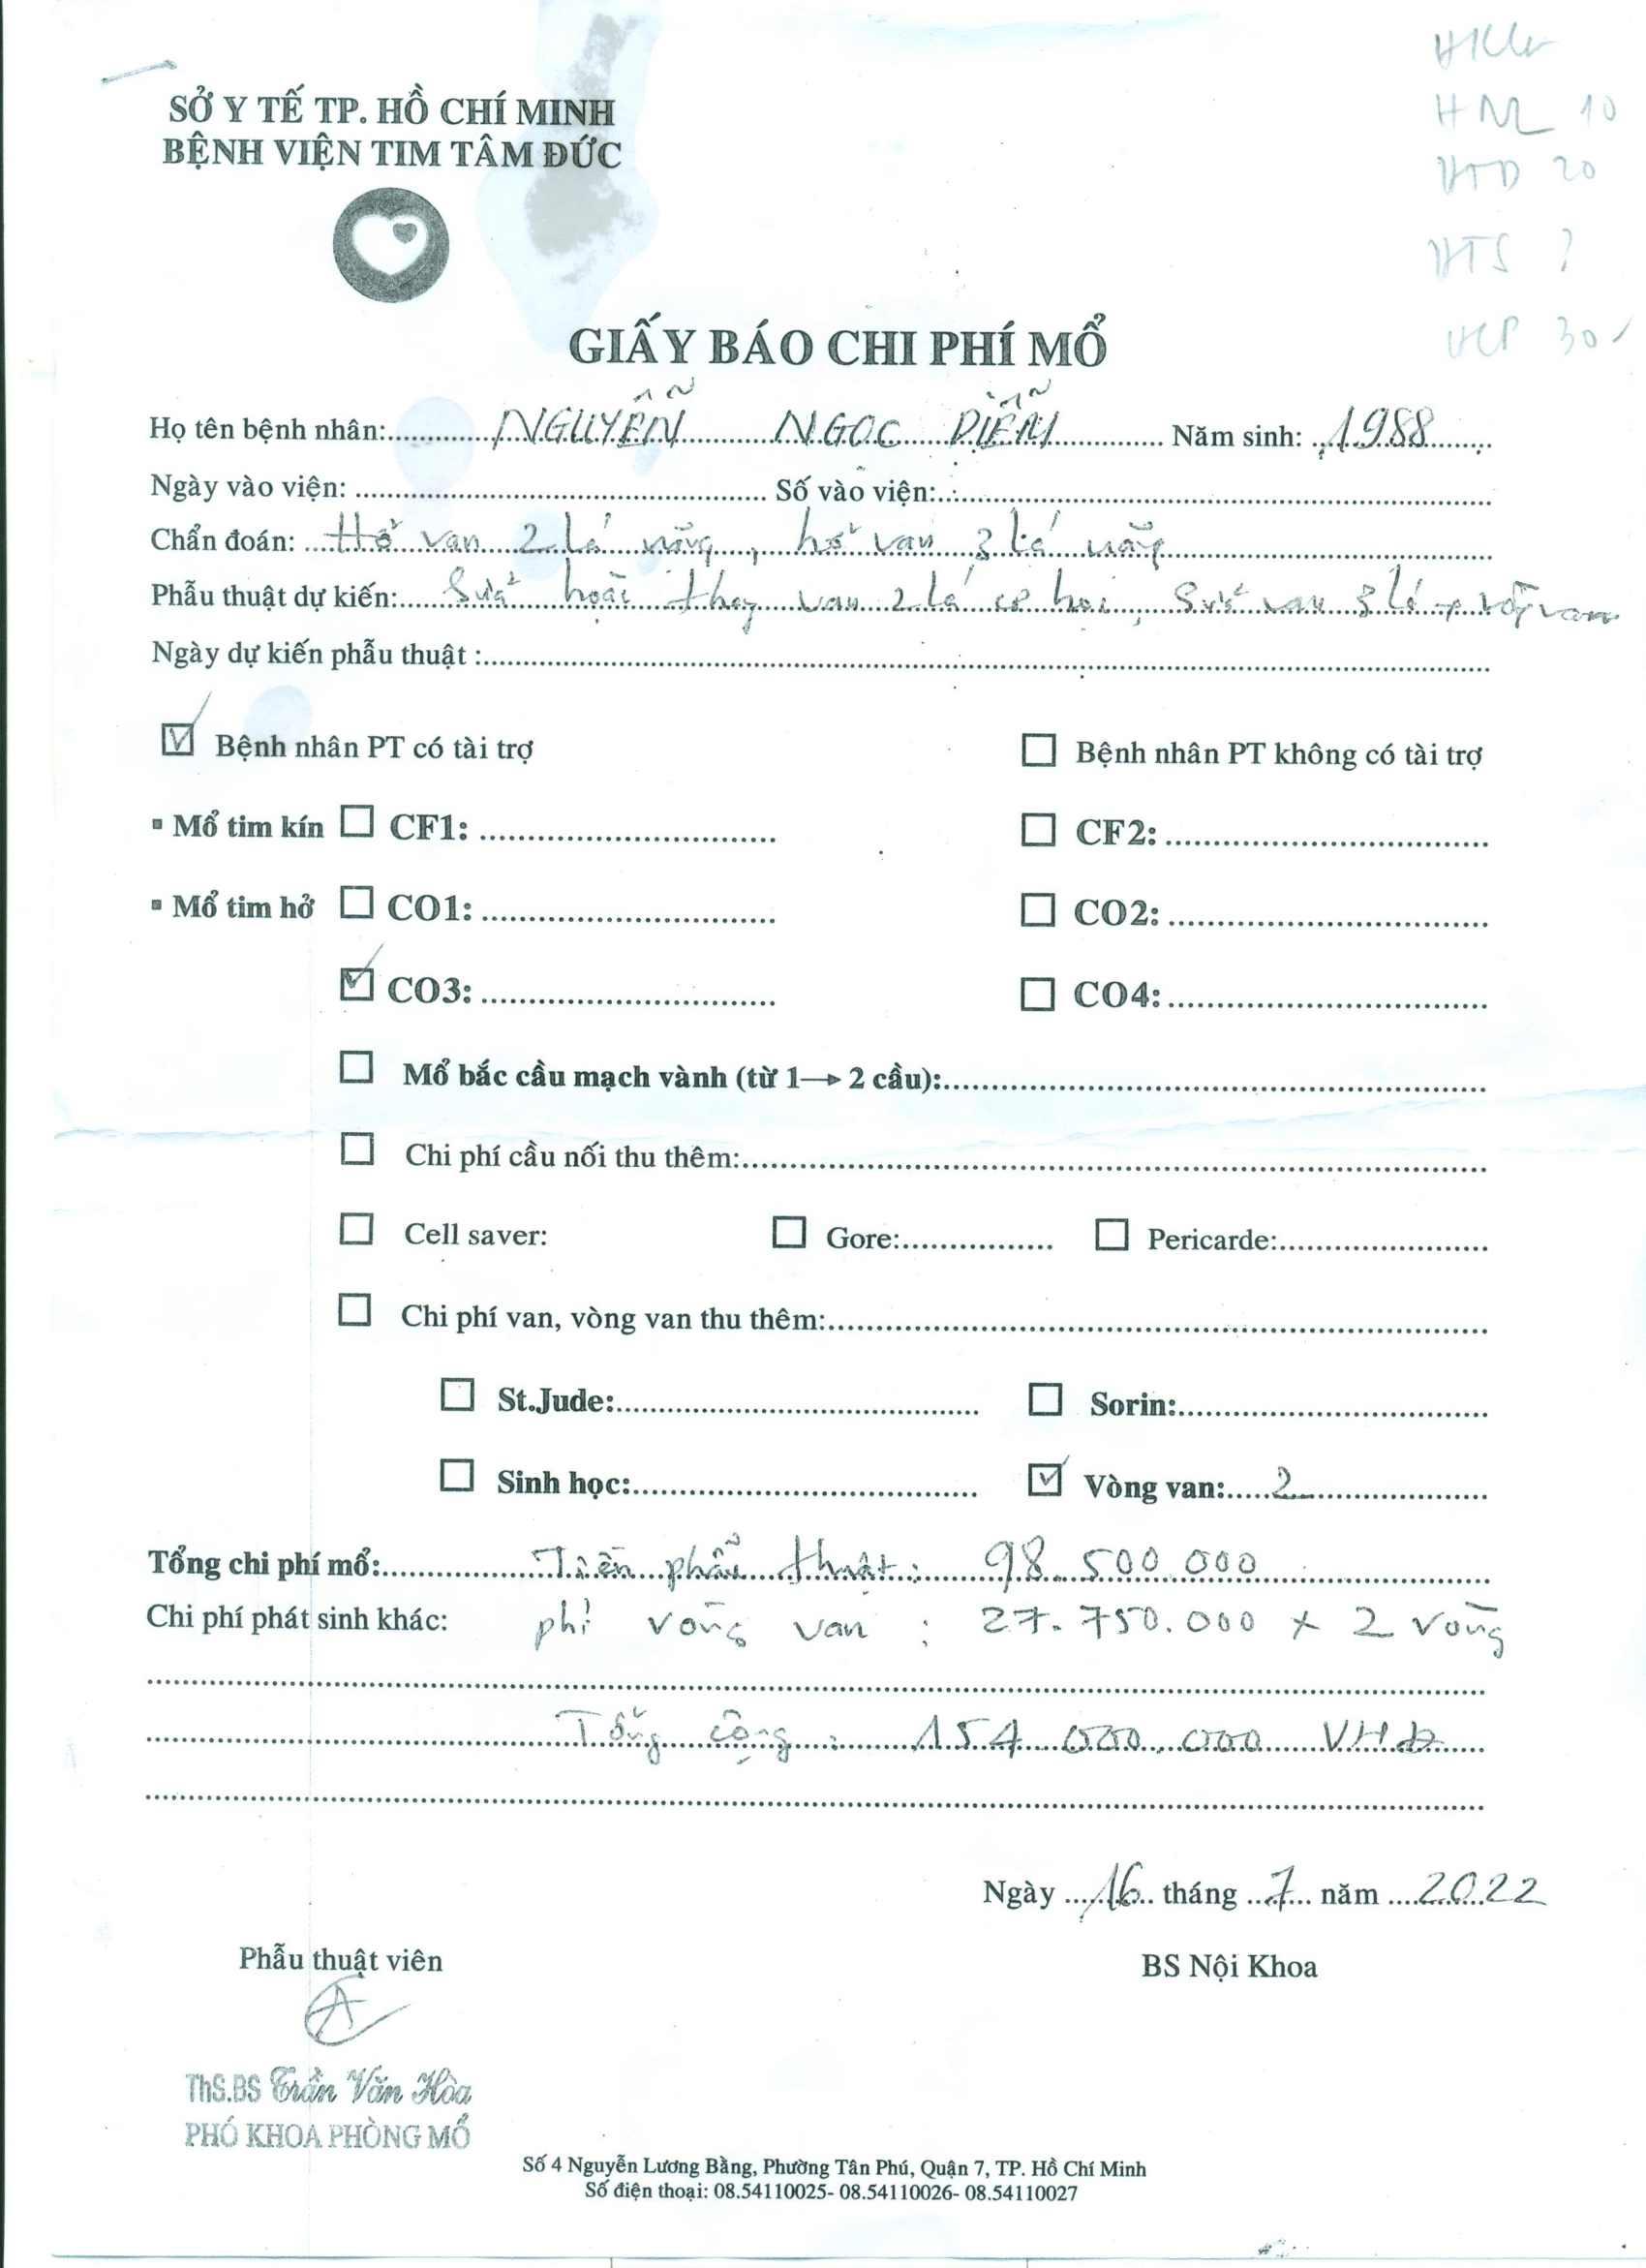 HNL 10
HTD 20
HTS ?
HCP 30
SỞ Y TẾ TP. HỒ CHÍ MINH
BỆNH VIỆN TIM TÂM ĐỨC
GIẤY BÁO CHI PHÍ MỔ
Họ tên bệnh nhân: NGUYỄN NGỌC DIỄM Năm sinh: 1988
Ngày vào viện: Số vào viện:
Chẩn đoán: Hở van 2 lá nặng, hở van 3 lá nặng
Phẫu thuật dự kiến: Sửa hoặc thay van 2 lá cơ học, sửa van 3 lá + vòng van
Ngày dự kiến phẫu thuật :
☑ Bệnh nhân PT có tài trợ ☐ Bệnh nhân PT không có tài trợ
▪ Mổ tim kín ☐ CF1: ☐ CF2:
▪ Mổ tim hở ☐ CO1: ☐ CO2:
☑ CO3: ☐ CO4:
☐ Mổ bắc cầu mạch vành (từ 1→ 2 cầu):
☐ Chi phí cầu nối thu thêm:
☐ Cell saver: ☐ Gore: ☐ Pericarde:
☐ Chi phí van, vòng van thu thêm:
☐ St.Jude: ☐ Sorin:
☐ Sinh học: ☑ Vòng van: 2
Tổng chi phí mổ: Tiền phẫu thuật: 98.500.000
Chi phí phát sinh khác: phí vòng van : 27.750.000 x 2 vòng
Tổng cộng : 154.000.000 VNĐ
Ngày 16 tháng 7 năm 2022
Phẫu thuật viên BS Nội Khoa
ThS.BS Trần Văn Hòa
PHÓ KHOA PHÒNG MỔ
Số 4 Nguyễn Lương Bằng, Phường Tân Phú, Quận 7, TP. Hồ Chí Minh
Số điện thoại: 08.54110025- 08.54110026- 08.54110027